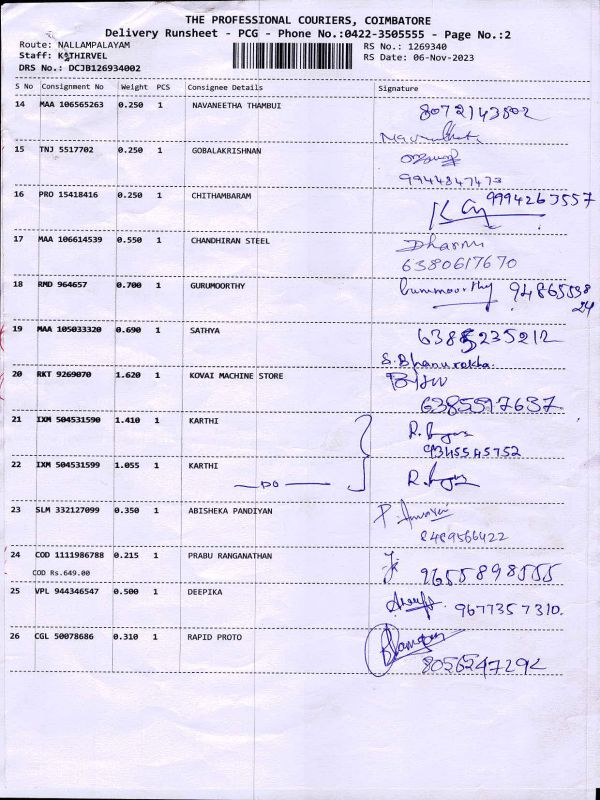 THE PROFESSIONAL COURIERS, COIMBATORE
Delivery Runsheet - PCG - Phone No.:0422-3505555 - Page No.:2
Route: NALLAMPALAYAM RS No.: 1269340
Staff: KATHIRVEL RS Date: 06-Nov-2023
DRS No.: DCJB126934002
S No Consignment No Weight PCS Consignee Details Signature
14 MAA 106565263 0.250 1 NAVANEETHA THAMBUI 8072143802
15 TNJ 5517702 0.250 1 GOBALAKRISHNAN
9944847473
16 PRO 15418416 0.250 1 CHITHAMBARAM 9994263557
17 MAA 106614539 0.550 1 CHANDHIRAN STEEL Dharni
6380617670
18 RMD 964657 0.700 1 GURUMOORTHY Gurumoorthy 94865538
24
19 MAA 105033320 0.690 1 SATHYA 6385235212
S. Bhanurekha.
20 RKT 9269070 1.620 1 KOVAI MACHINE STORE
6385597637
21 IXM 504531590 1.410 1 KARTHI
9345545752
22 IXM 504531599 1.055 1 KARTHI
DO
23 SLM 332127099 0.350 1 ABISHEKA PANDIYAN
8489566422
24 COD 1111986788 0.215 1 PRABU RANGANATHAN 9655898555
COD Rs.649.00
25 VPL 944346547 0.500 1 DEEPIKA 9677357310.
26 CGL 50078686 0.310 1 RAPID PROTO
8056247292